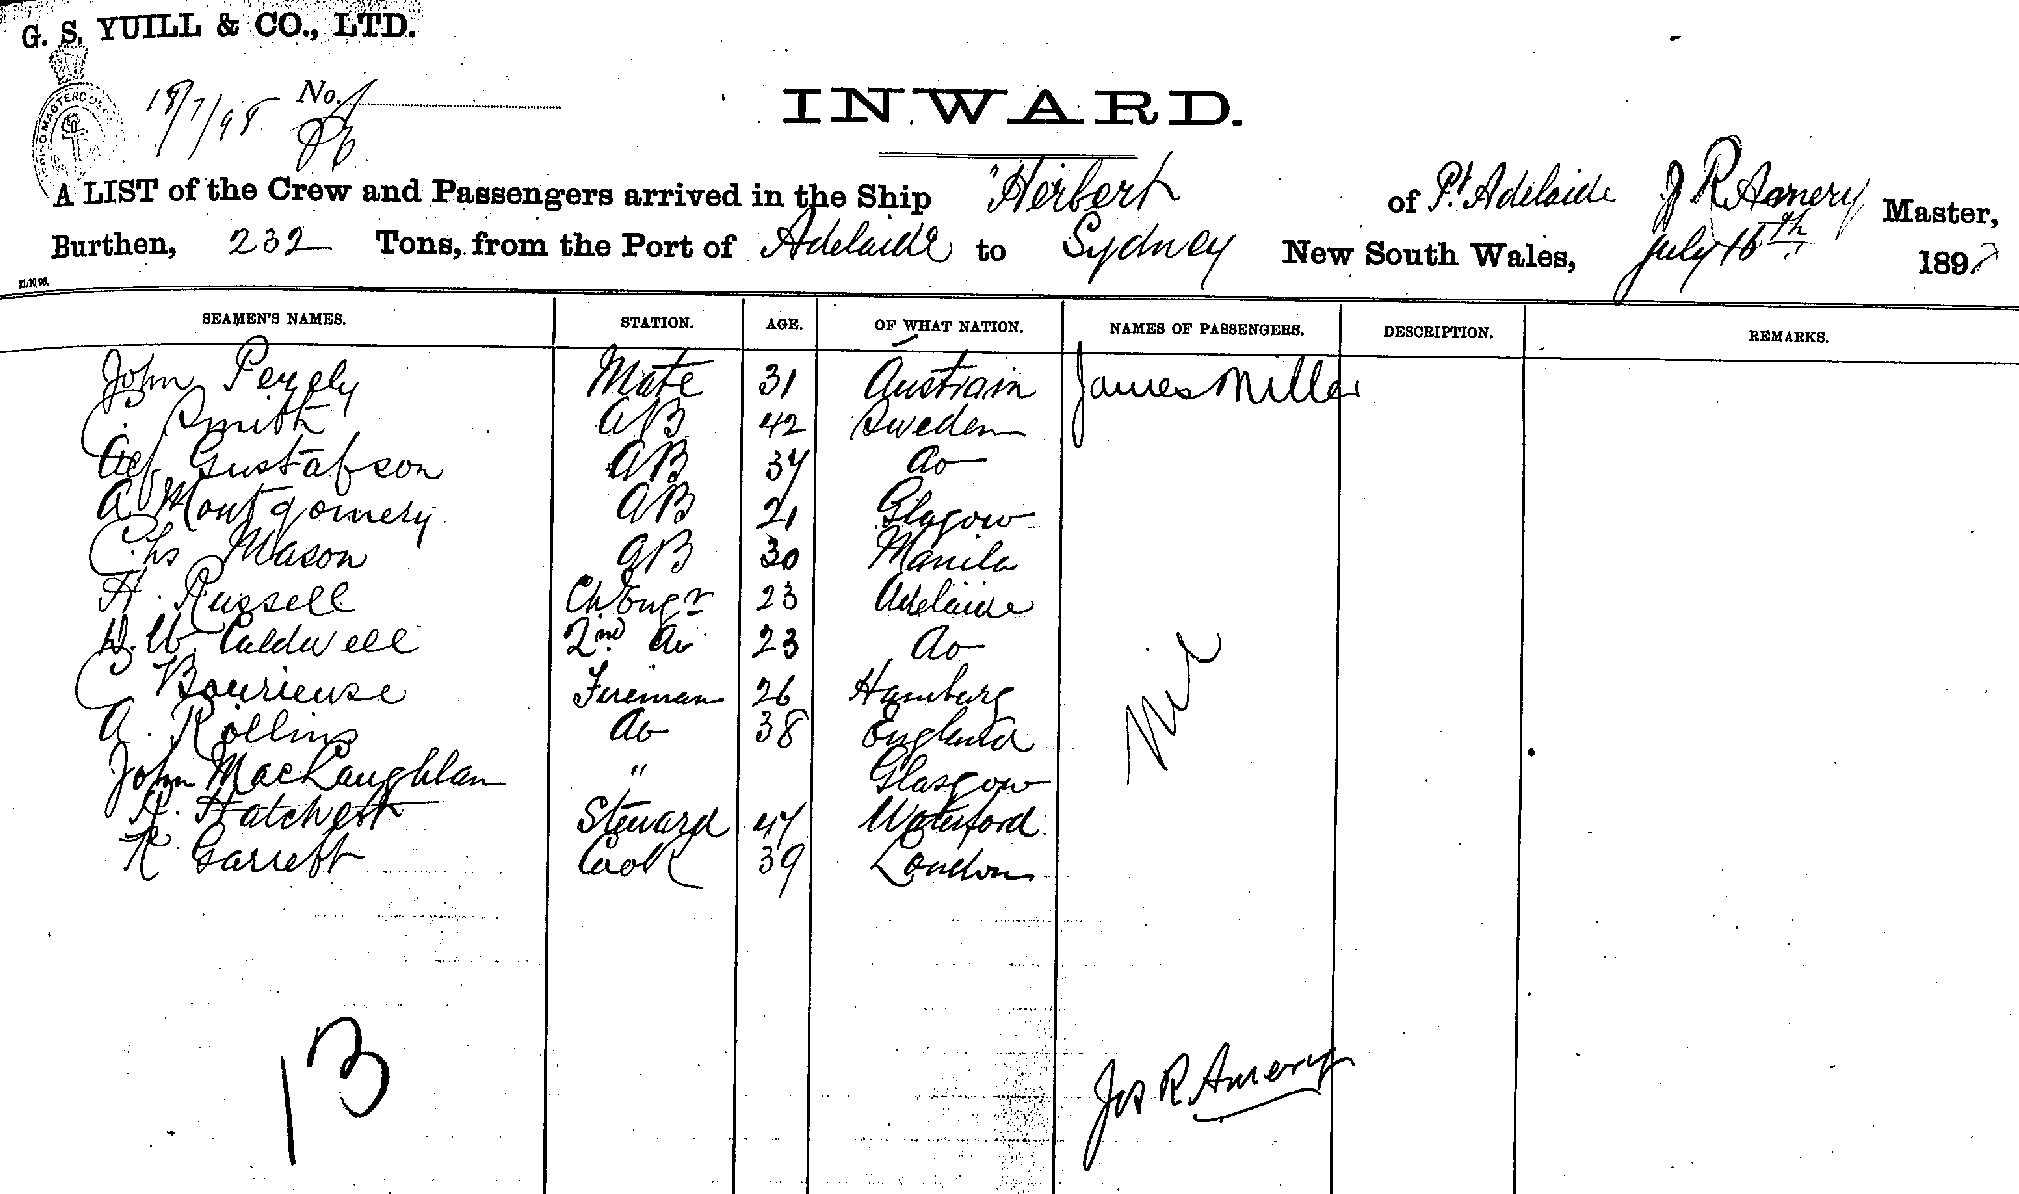 G. S. YUILL & CO., LTD.
18/7/98 No.
INWARD.
A LIST of the Crew and Passengers arrived in the Ship "Herbert of Pt Adelaide J R Amery Master,
Burthen, 232 Tons, from the Port of Adelaide to Sydney New South Wales, July 18th 189
SEAMEN'S NAMES. STATION. AGE. OF WHAT NATION. NAMES OF PASSENGERS. DESCRIPTION. REMARKS.
John Mate 31 Austrain James Miller
C. Smith AB 42 Sweden
Gustafson AB 37 do
A Montgomery AB 21 Glagow
Chs Mason AB 30 Manila
H. Russell Ch Engr 23 Adelaide
H. W. Caldwell 2nd do 23 do
C Bourieuse Fireman 26 Hamburg
A. Rollins do 38 England
John MacLaughlan " Glasgow
Hatchett Steward 47 Waterford
Garrett Cook 39 London
Nil
13
Jos R Amery